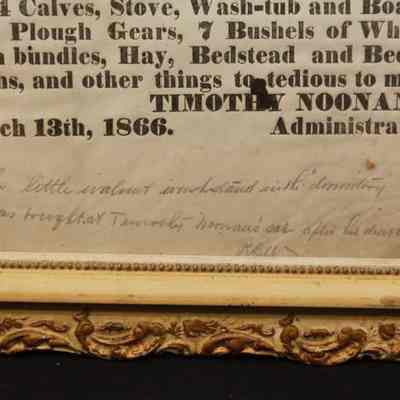 4 Calves, Stove, Wash-tub and Boa
Plough Gears, 7 Bushels of Wh
n bundles, Hay, Bedstead and Bed
hs, and other things to tedious to m
TIMOTHY NOONAN
ch 13th, 1866. Administra
little walnut washstand in the dormitory
was bought at Timothy Noonan's sale after his